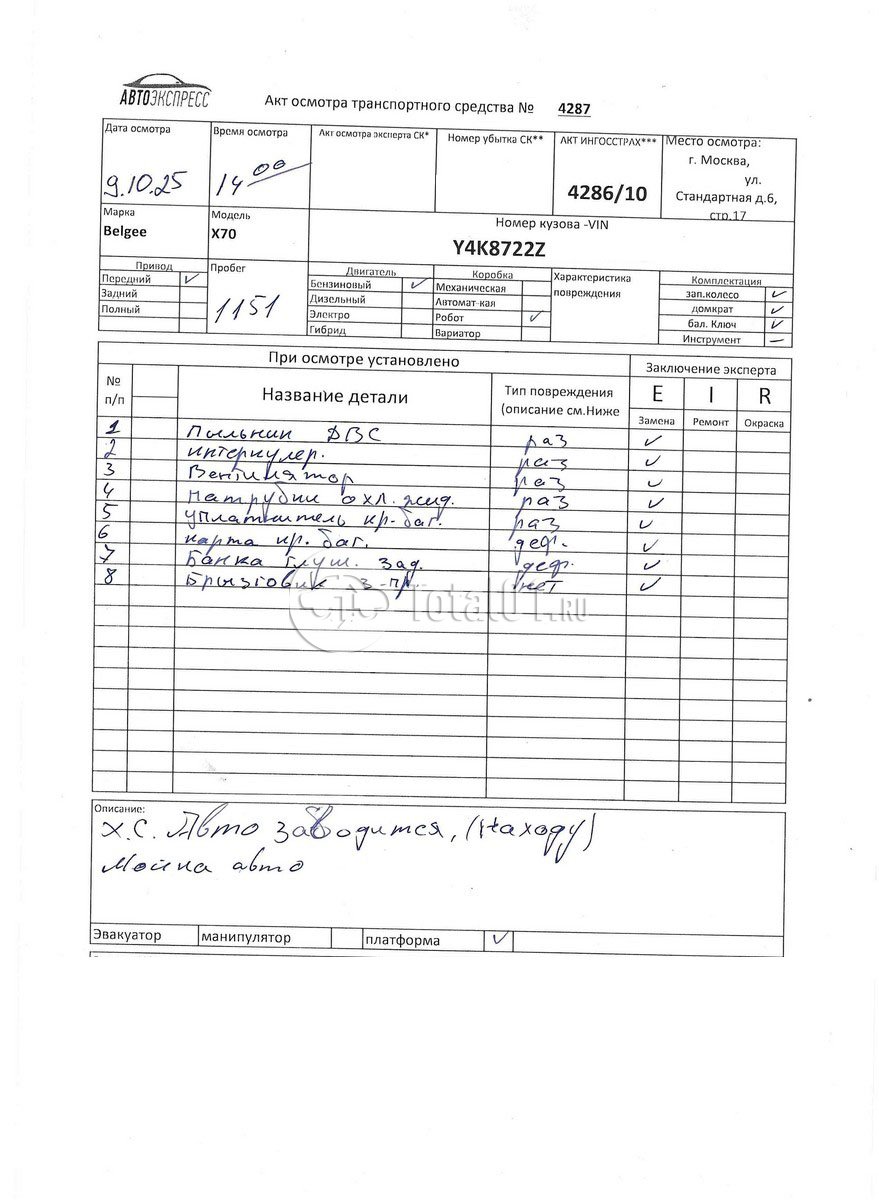 АВТОЭКСПРЕСС
Акт осмотра транспортного средства № 4287
Дата осмотра
9.10.25
Время осмотра
14 00
Акт осмотра эксперта СК*
Номер убытка СК**
АКТ ИНГОССТРАХ***
4286/10
Место осмотра:
г. Москва,
ул.
Стандартная д.6,
стр.17
Марка
Belgee
Модель
X70
Номер кузова -VIN
Y4K8722Z
Привод
Передний ✓
Задний
Полный
Пробег
1151
Двигатель
Бензиновый ✓
Дизельный
Электро
Гибрид
Коробка
Механическая
Автомат-кая
Робот ✓
Вариатор
Характеристика
повреждения
Комплектация
зап.колесо ✓
домкрат ✓
бал. Ключ ✓
Инструмент —
При осмотре установлено
Заключение эксперта
№
п/п
Название детали
Тип повреждения
(описание см.Ниже
E I R
Замена Ремонт Окраска
1 Пыльник ДВС раз ✓
2 интеркулер. раз ✓
3 Вентилятор раз ✓
4 Патрубки охл. жид. раз ✓
5 уплатнитель кр. баг. раз ✓
6 карта кр. баг. деф. ✓
7 Банка глуш. зад. деф. ✓
8 Брызговик з-пр. нет ✓
Total01.RU
Описание:
Х.С. Авто заводится, (Находу)
Мойка авто
Эвакуатор манипулятор платформа ✓